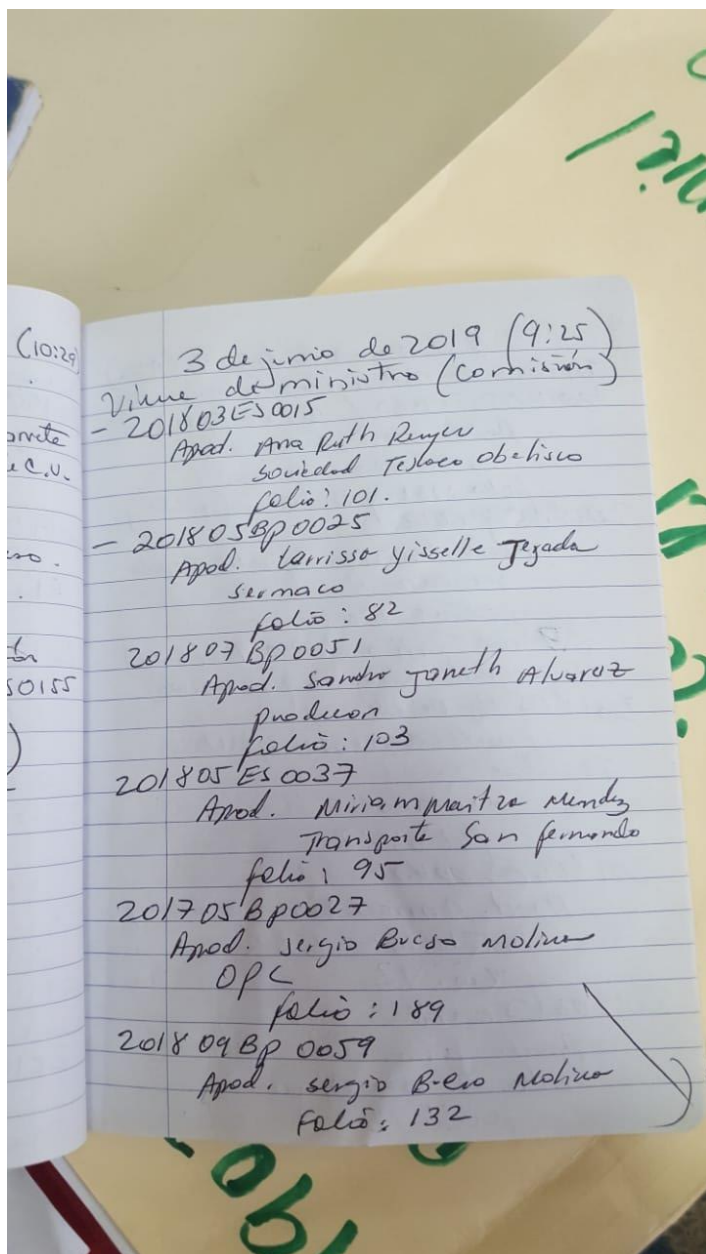 (10:29
3 de junio de 2019 (9:25)
Viene de ministro (Comisión)
- 201803ES0015
Apod. Ana Ruth
Sociedad Texaco Obelisco
folio: 101.
- 201805BP0025
Apod. Larrissa Yisselle Tejada
Sermaco
folio: 82
201807BP0051
Apod. Sandra Janeth Alvarez
Producon
folio: 103
201805ES0037
Apod. Miriam Maritza Mendez
Transporte San fernando
folio: 95
201705BP0027
Apod. Sergio Bueso Molina
OPC
folio: 189
201809BP0059
Apod. Sergio Bueso Molina
Folio: 132
e C.U.
S0155